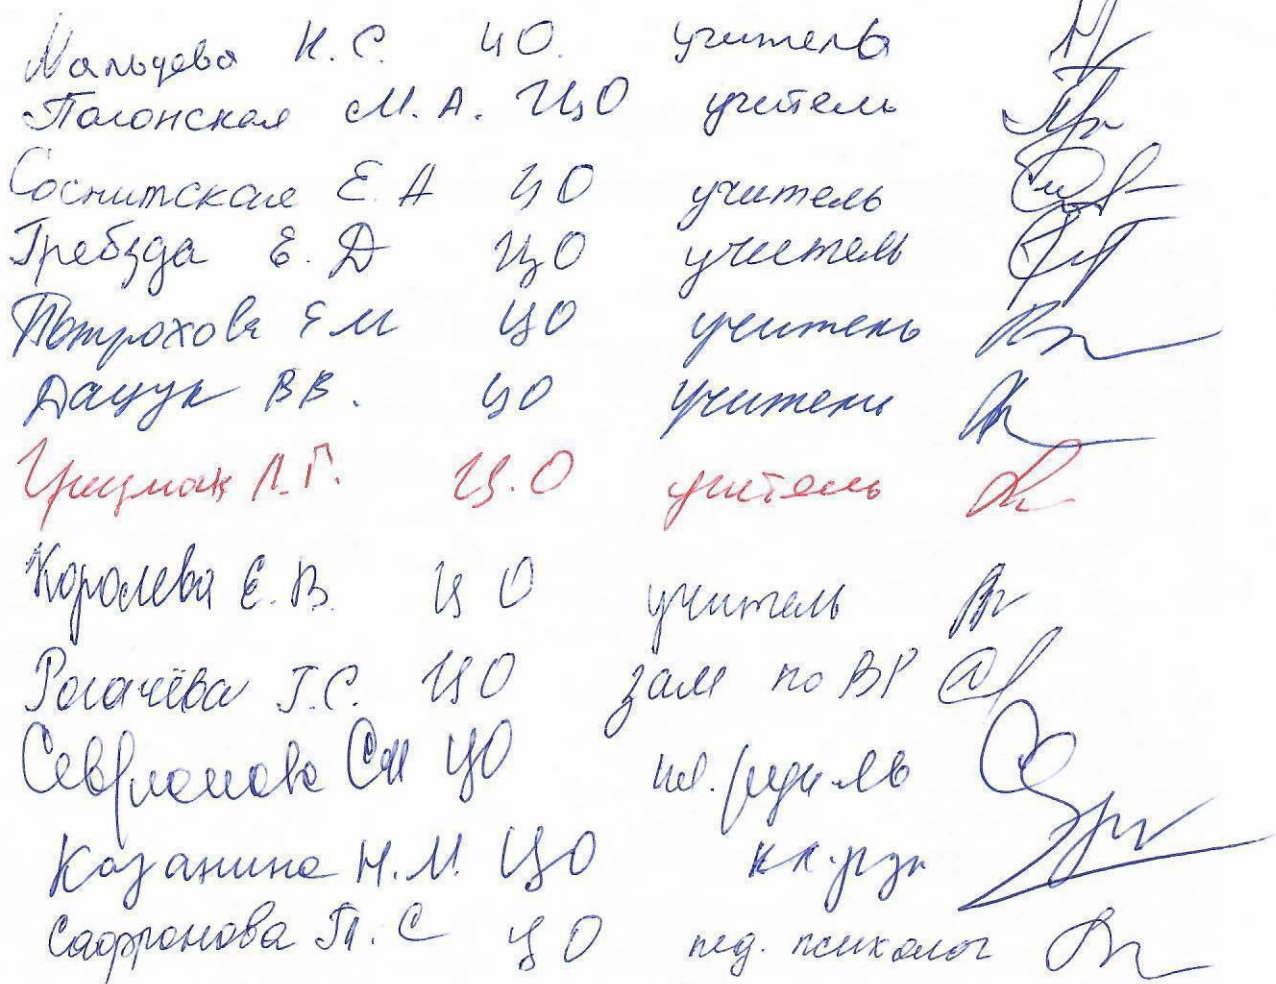 Мальцева Н.С. ЦО. учитель
Полонская М.А. ЦО учитель
Соснитская Е.А ЦО учитель
Гребзда Е.Д ЦО учитель
Потрохова ЕМ ЦО учитель
Дацук ВВ. ЦО учитель
Л.Г. Ц.О учитель
Королева Е.В. ЦО учитель
Рогачёва Г.С. ЦО зам по ВР
СМ ЦО
Казанина Н.М. ЦО кл. рук
Сафронова Т.С ЦО пед. психолог